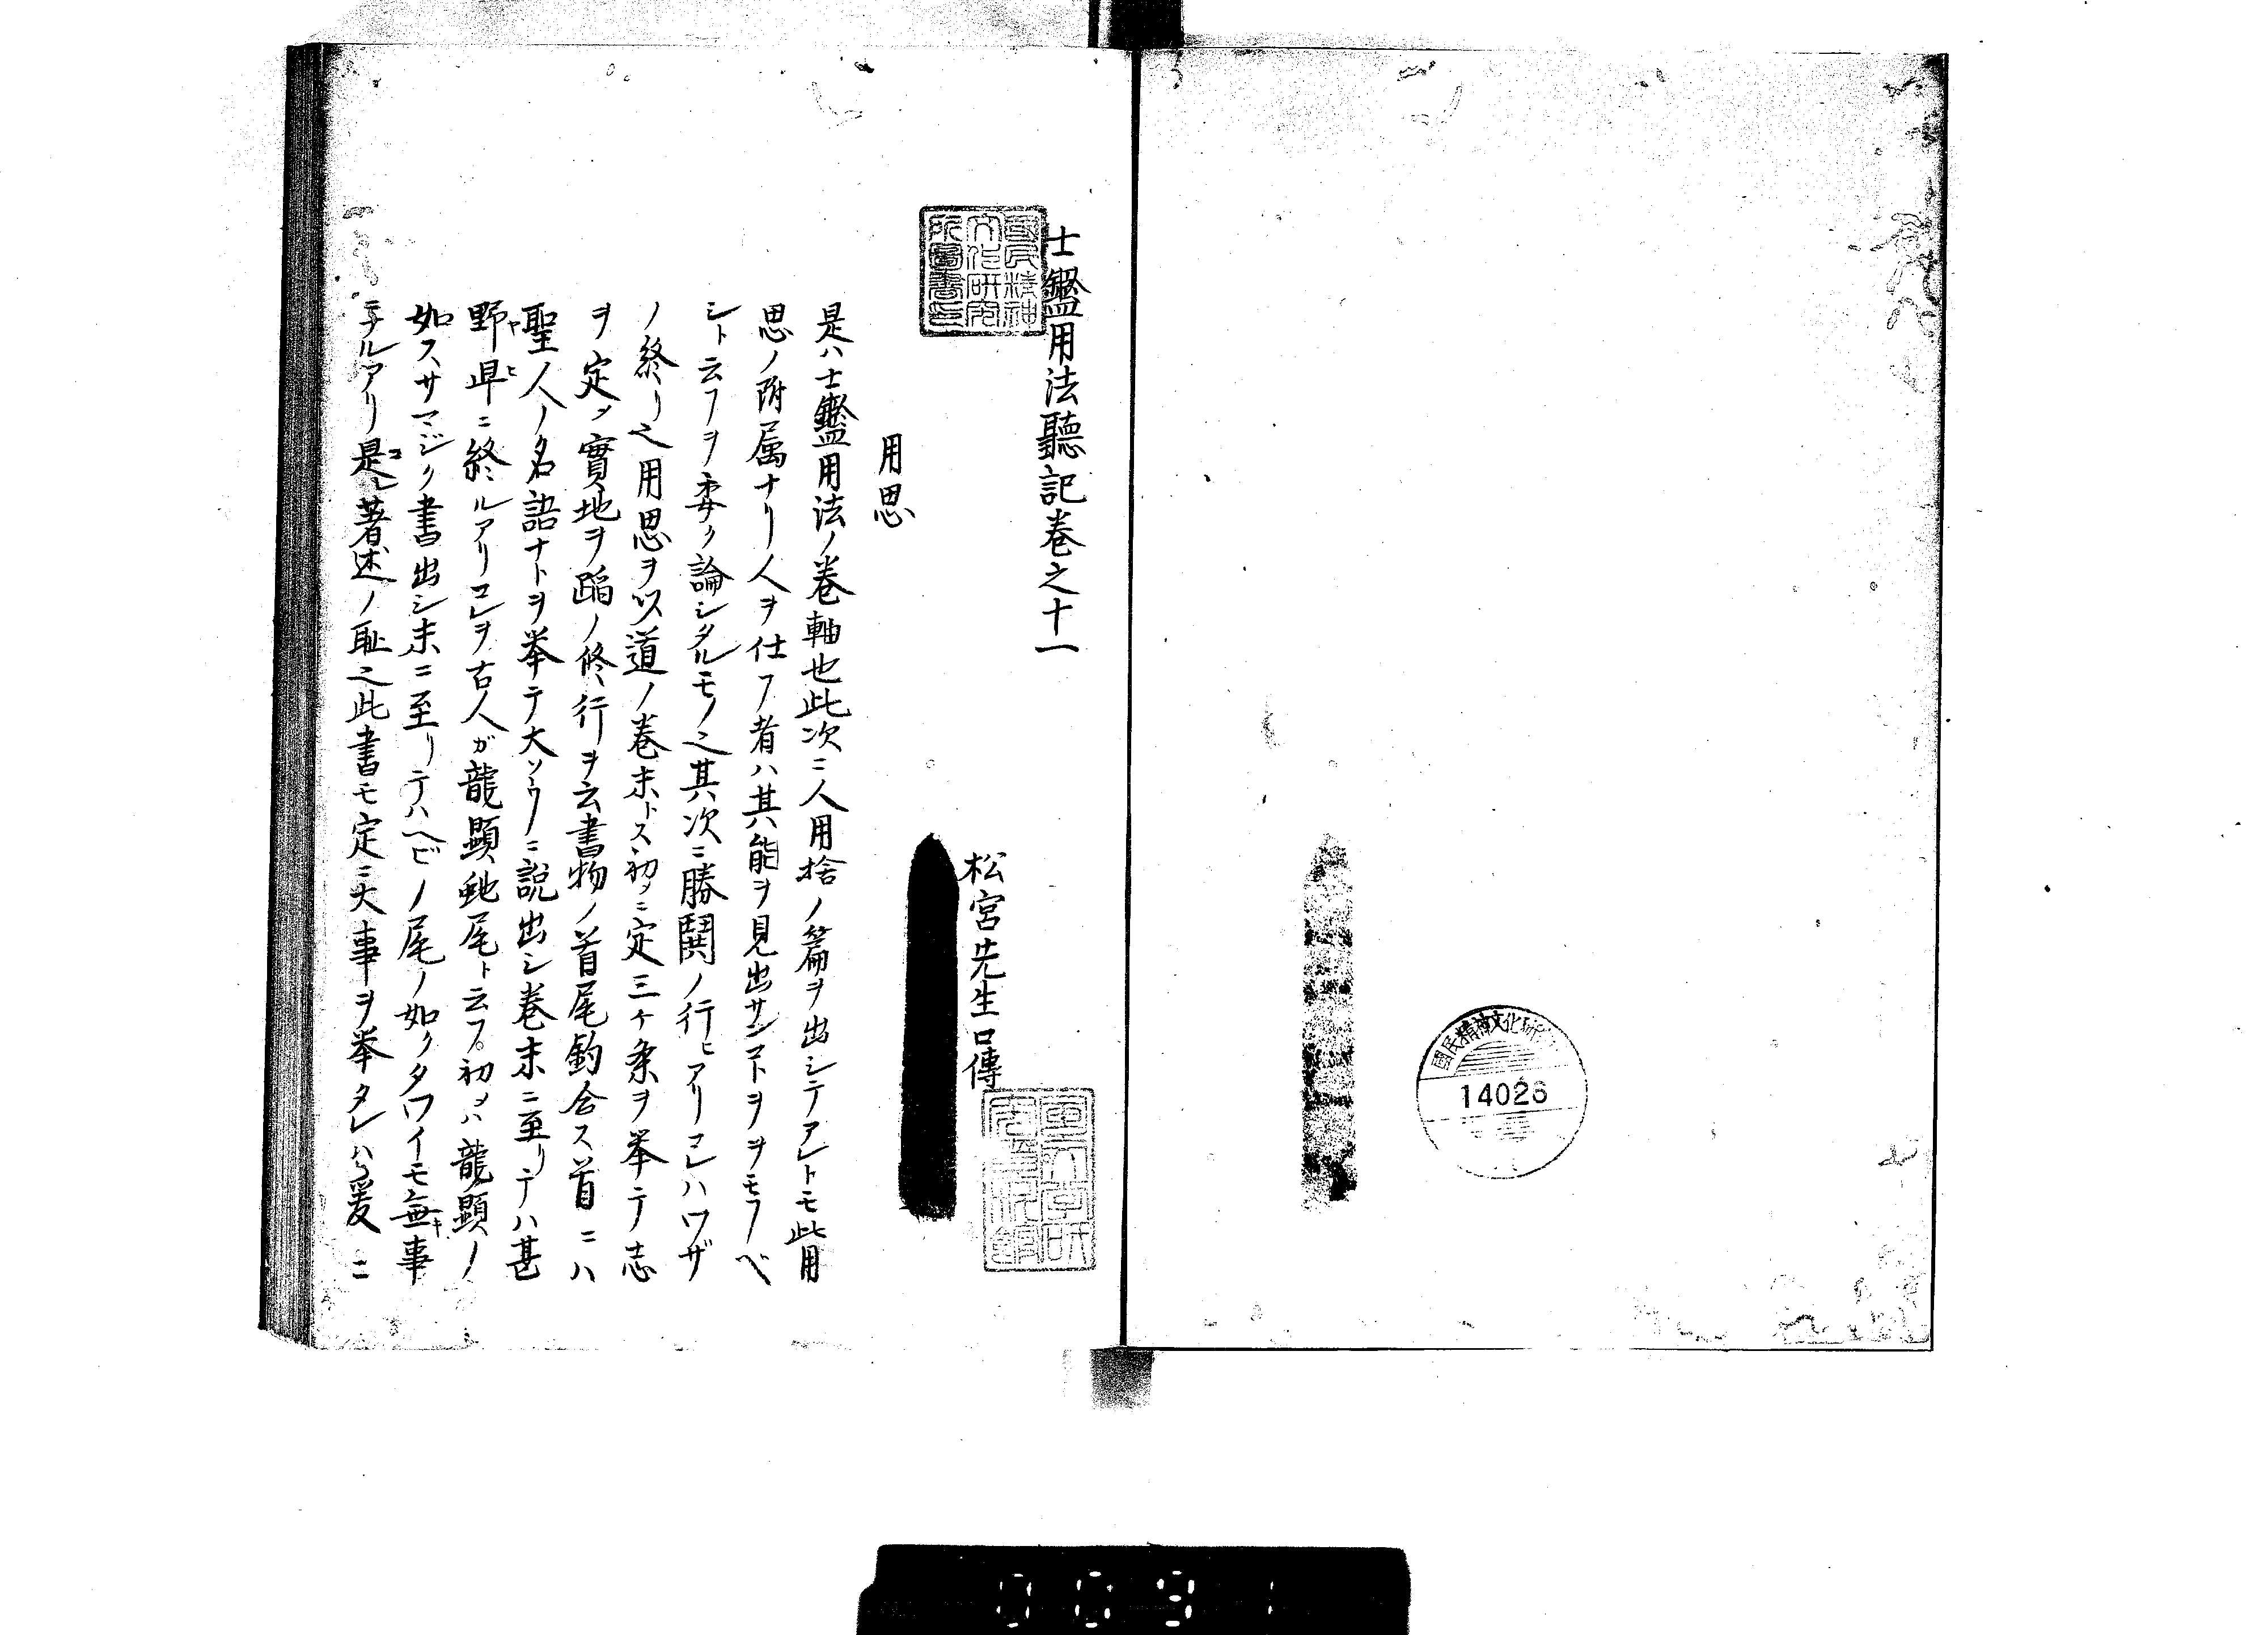 士鑑用法聽記卷之十一
國民精神
文化研究
所圖書印
松宮先生口傳
用思
是ハ士鑑用法ノ卷軸也此次ニ人用捨ノ篇ヲ出シテアレトモ此用
思ノ附属ナリ人ヲ仕フ者ハ其能ヲ見出サンコトヲヲモフベ
シト云フヲ委ク論シタルモノ之其次ニ勝鬨ノ行ヒアリコレハワザ
ノ終リ之用思ヲ以道ノ卷末トス初メニ定三ケ条ヲ举テ志
ヲ定メ實地ヲ蹈ノ修行ヲ云書物ノ首尾釣合ス首ニハ
聖人ノ名語ナトヲ举テ大ソウニ説出シ卷末ニ至リテハ甚
野卑ニ終ルアリコレヲ古人ガ龍顕虵尾ト云フ初メハ龍顕ノ
如スサマジク書出シ末ニ至リテハヘビノ尾ノ如クタワイモ無キ事
ニナルアリ是レ著述ノ恥之此書モ定ニ大事ヲ举タレハ爰ニ
國民精神文化研
14026
0091